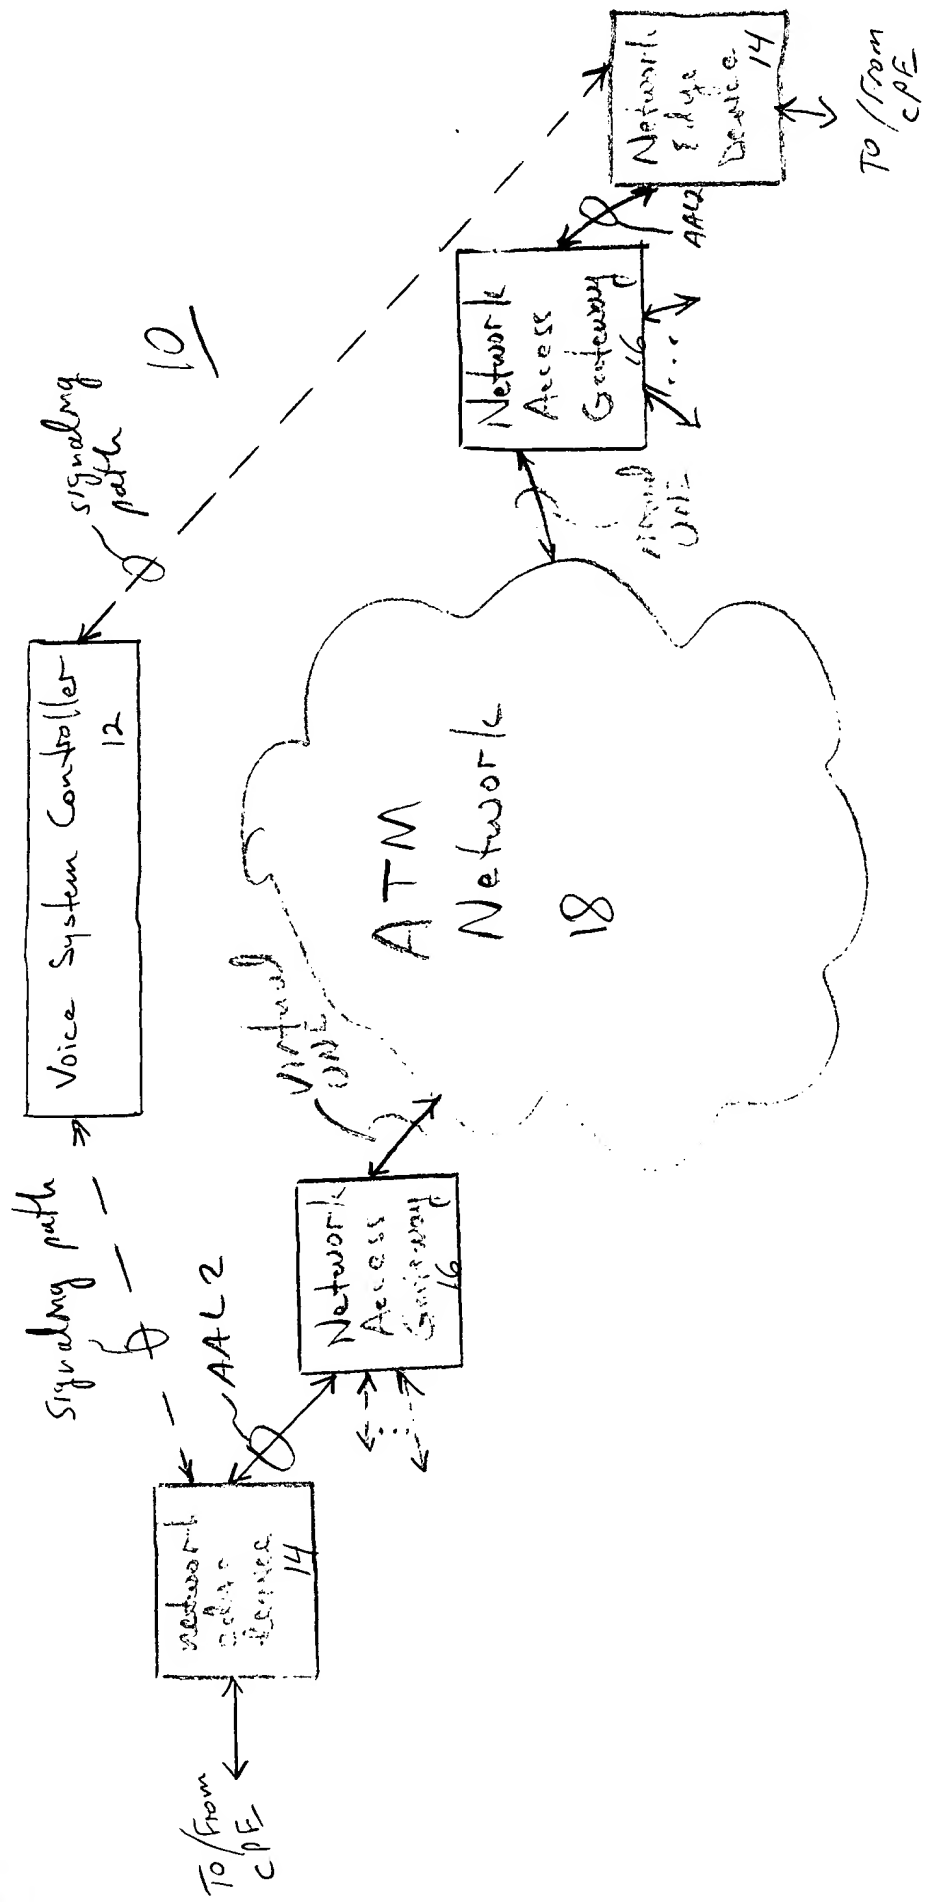 To/From
CPE
Network
Edge
Device
14
Signaling path
AAL2
Network
Access
Gateway
16
Virtual
UNE
Voice System Controller
12
ATM
Network
18
signaling
path
10
Virtual
UNE
Network
Access
Gateway
16
AAL2
Network
Edge
Device
14
To/From
CPE